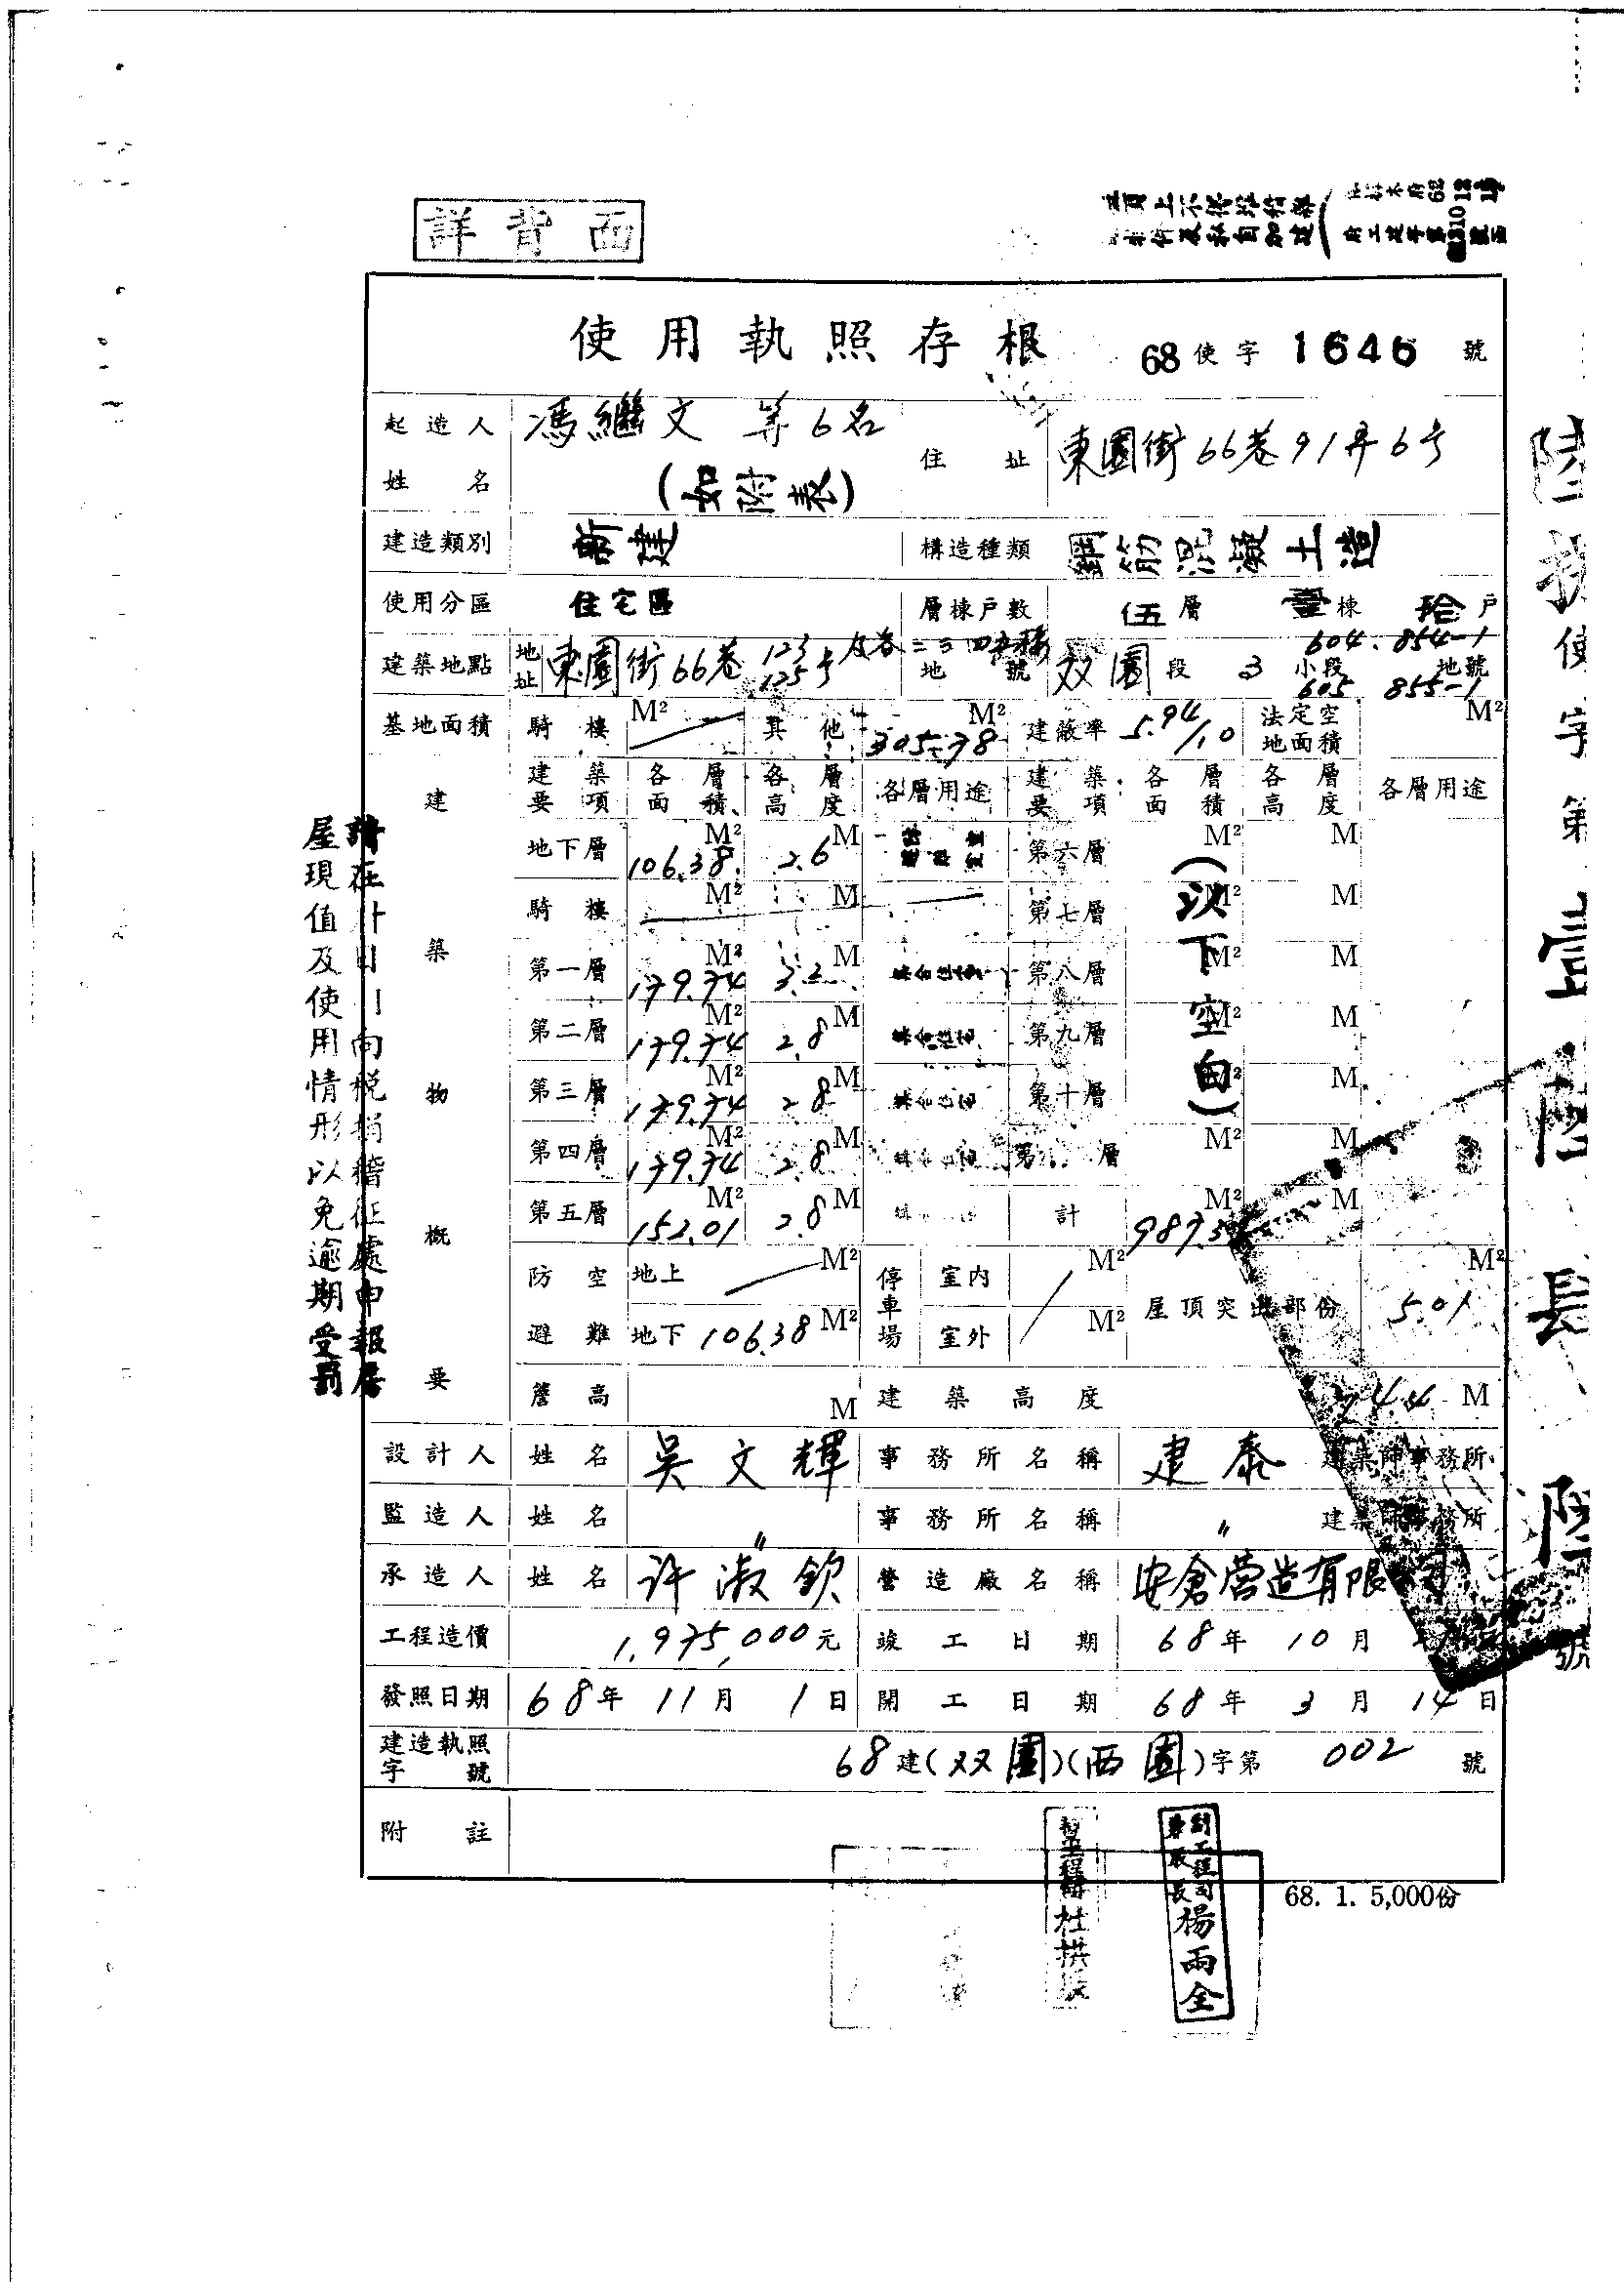 詳背面
使用執照存根 68使字1646號
起造人姓名 馮繼文 等6名 (如附表) 住址 東園街66巷91弄6号
建造類別 新建 構造種類 鋼筋混凝土造
使用分區 住宅區 層棟戶數 伍層 壹棟 拾戶
建築地點 地址 東園街66巷 123 125号及各二三四五樓 地號 双園段 3小段 604. 854-1 605 855-1 地號
基地面積 騎樓 M² 其他 305.78 M² 建蔽率 5.94/10 法定空地面積 M²
建築物概要
建築要項 各層面積 各層高度 各層用途 建築要項 各層面積 各層高度 各層用途
地下層 106.38 M² 2.6 M 第六層 M² M
騎樓 M² M 第七層 M² M
第一層 179.74 M² 3.2 M 集合住宅 第八層 M² M
第二層 179.74 M² 2.8 M 集合住宅 第九層 M² M
第三層 179.74 M² 2.8 M 第十層 M² M
第四層 179.74 M² 2.8 M 第 層 M² M
第五層 152.01 M² 2.8 M 計 M² M
(以下空白)
防空避難 地上 M² 停車場 室內 M² 屋頂突出部份 5.01 M²
地下 106.38 M² 室外 M²
簷高 M 建築高度 M
設計人 姓名 吳文輝 事務所名稱 建泰 建築師事務所
監造人 姓名 〃 事務所名稱 〃 建築師事務所
承造人 姓名 許淑欽 營造廠名稱 安倉营造有限
工程造價 1,975,000元 竣工日期 68年10月
發照日期 68年11月1日 開工日期 68年3月14日
建造執照字號 68建(双園)(西園)字第 002 號
附註
68. 1. 5,000份
副工程司
楊雨全
請在 向稅捐稽征處申報房
屋現值及使用情形以免逾期受罰
陸 使字第